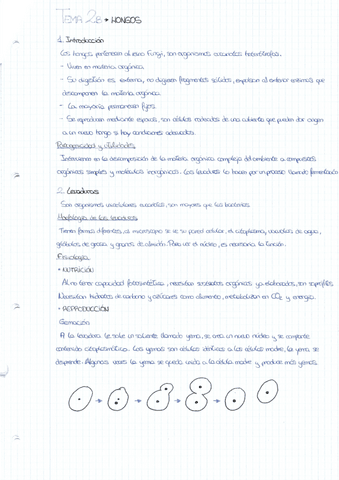 TEMA 28 * HONGOS
1. Introducción
Los hongos pertenecen al reino Fungi, son organismos eucariotas heterótrofos.
- Viven en materia orgánica.
- Su digestión es externa, no digieren fragmentos sólidos, expulsan al exterior enzimas que
descomponen la materia orgánica.
- La mayoría permanecen fijos.
- Se reproducen mediante esporas, son células rodeadas de una cubierta que pueden dar origen
a un nuevo hongo si hay condiciones adecuadas.
Patogenicidad y utilidades
Intervienen en la descomposición de la materia orgánica compleja del ambiente a compuestos
orgánicos simples y moléculas inorgánicas. Las levaduras lo hacen por un proceso llamado fermentación
2. Levaduras
Son organismos unicelulares eucariotas, son mayores que las bacterias.
Morfología de las levaduras
Tienen formas diferentes, al microscopio se ve su pared celular, el citoplasma, vacuolas de agua,
glóbulos de grasa y granos de almidón. Para ver el núcleo, es necesaria la tinción.
Fisiología
* NUTRICIÓN
Al no tener capacidad fotosintética, necesitan sustancias orgánicas ya elaboradas, son saprófitas.
Necesitan hidratos de carbono y azúcares como alimento, metabolizan en CO2 y energía.
* REPRODUCCIÓN
Gemación
A la levadura le sale un saliente llamado yema, se crea un nuevo núcleo y se comparte
contenido citoplasmático. Las yemas son células idénticas a las células madre, la yema se
desprende. Algunas veces la yema se queda unida a la célula madre y produce más yemas.